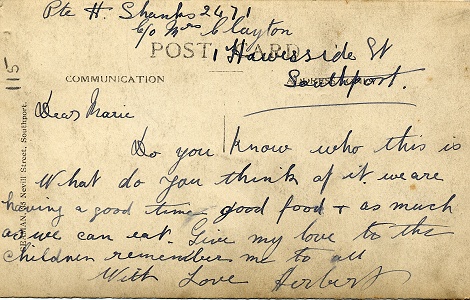 Pte H. Shanks 2471
c/o Mrs Clayton
POST CARD
1 Hawesside St
Southport.
COMMUNICATION
115
Nevill Street, Southport.
Dear Marie
Do you know who this is
What do you think of it we are
having a good time good food + as much
as we can eat. Give my love to the
children remember me to all
With Love Herbert